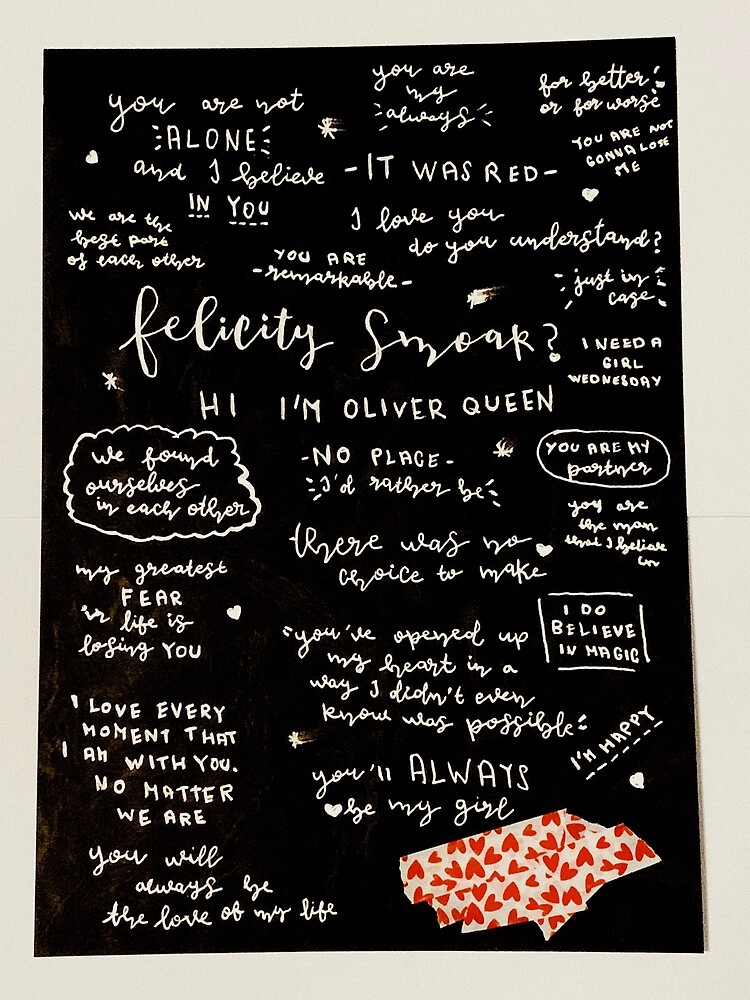 you are not
ALONE
and I believe
IN YOU
you are
my
always
for better
or for worse
YOU ARE NOT
GONNA LOSE
ME
-IT WAS RED-
we are the
best part
of each other
I love you
do you understand?
YOU ARE
-remarkable-
just in
case
felicity Smoak?
I NEED A
GIRL
WEDNESDAY
HI I'M OLIVER QUEEN
we found
ourselves
in each other
-NO PLACE-
I'd rather be
YOU ARE MY
partner
you are
the man
that I believe
in
there was no
choice to make
my greatest
FEAR
in life is
losing YOU
I DO
BELIEVE
IN MAGIC
you've opened up
my heart in a
way I didn't even
know was possible
I LOVE EVERY
MOMENT THAT
I AM WITH YOU.
NO MATTER
WE ARE
I'M HAPPY
you'll ALWAYS
be my girl
you will
always be
the love of my life